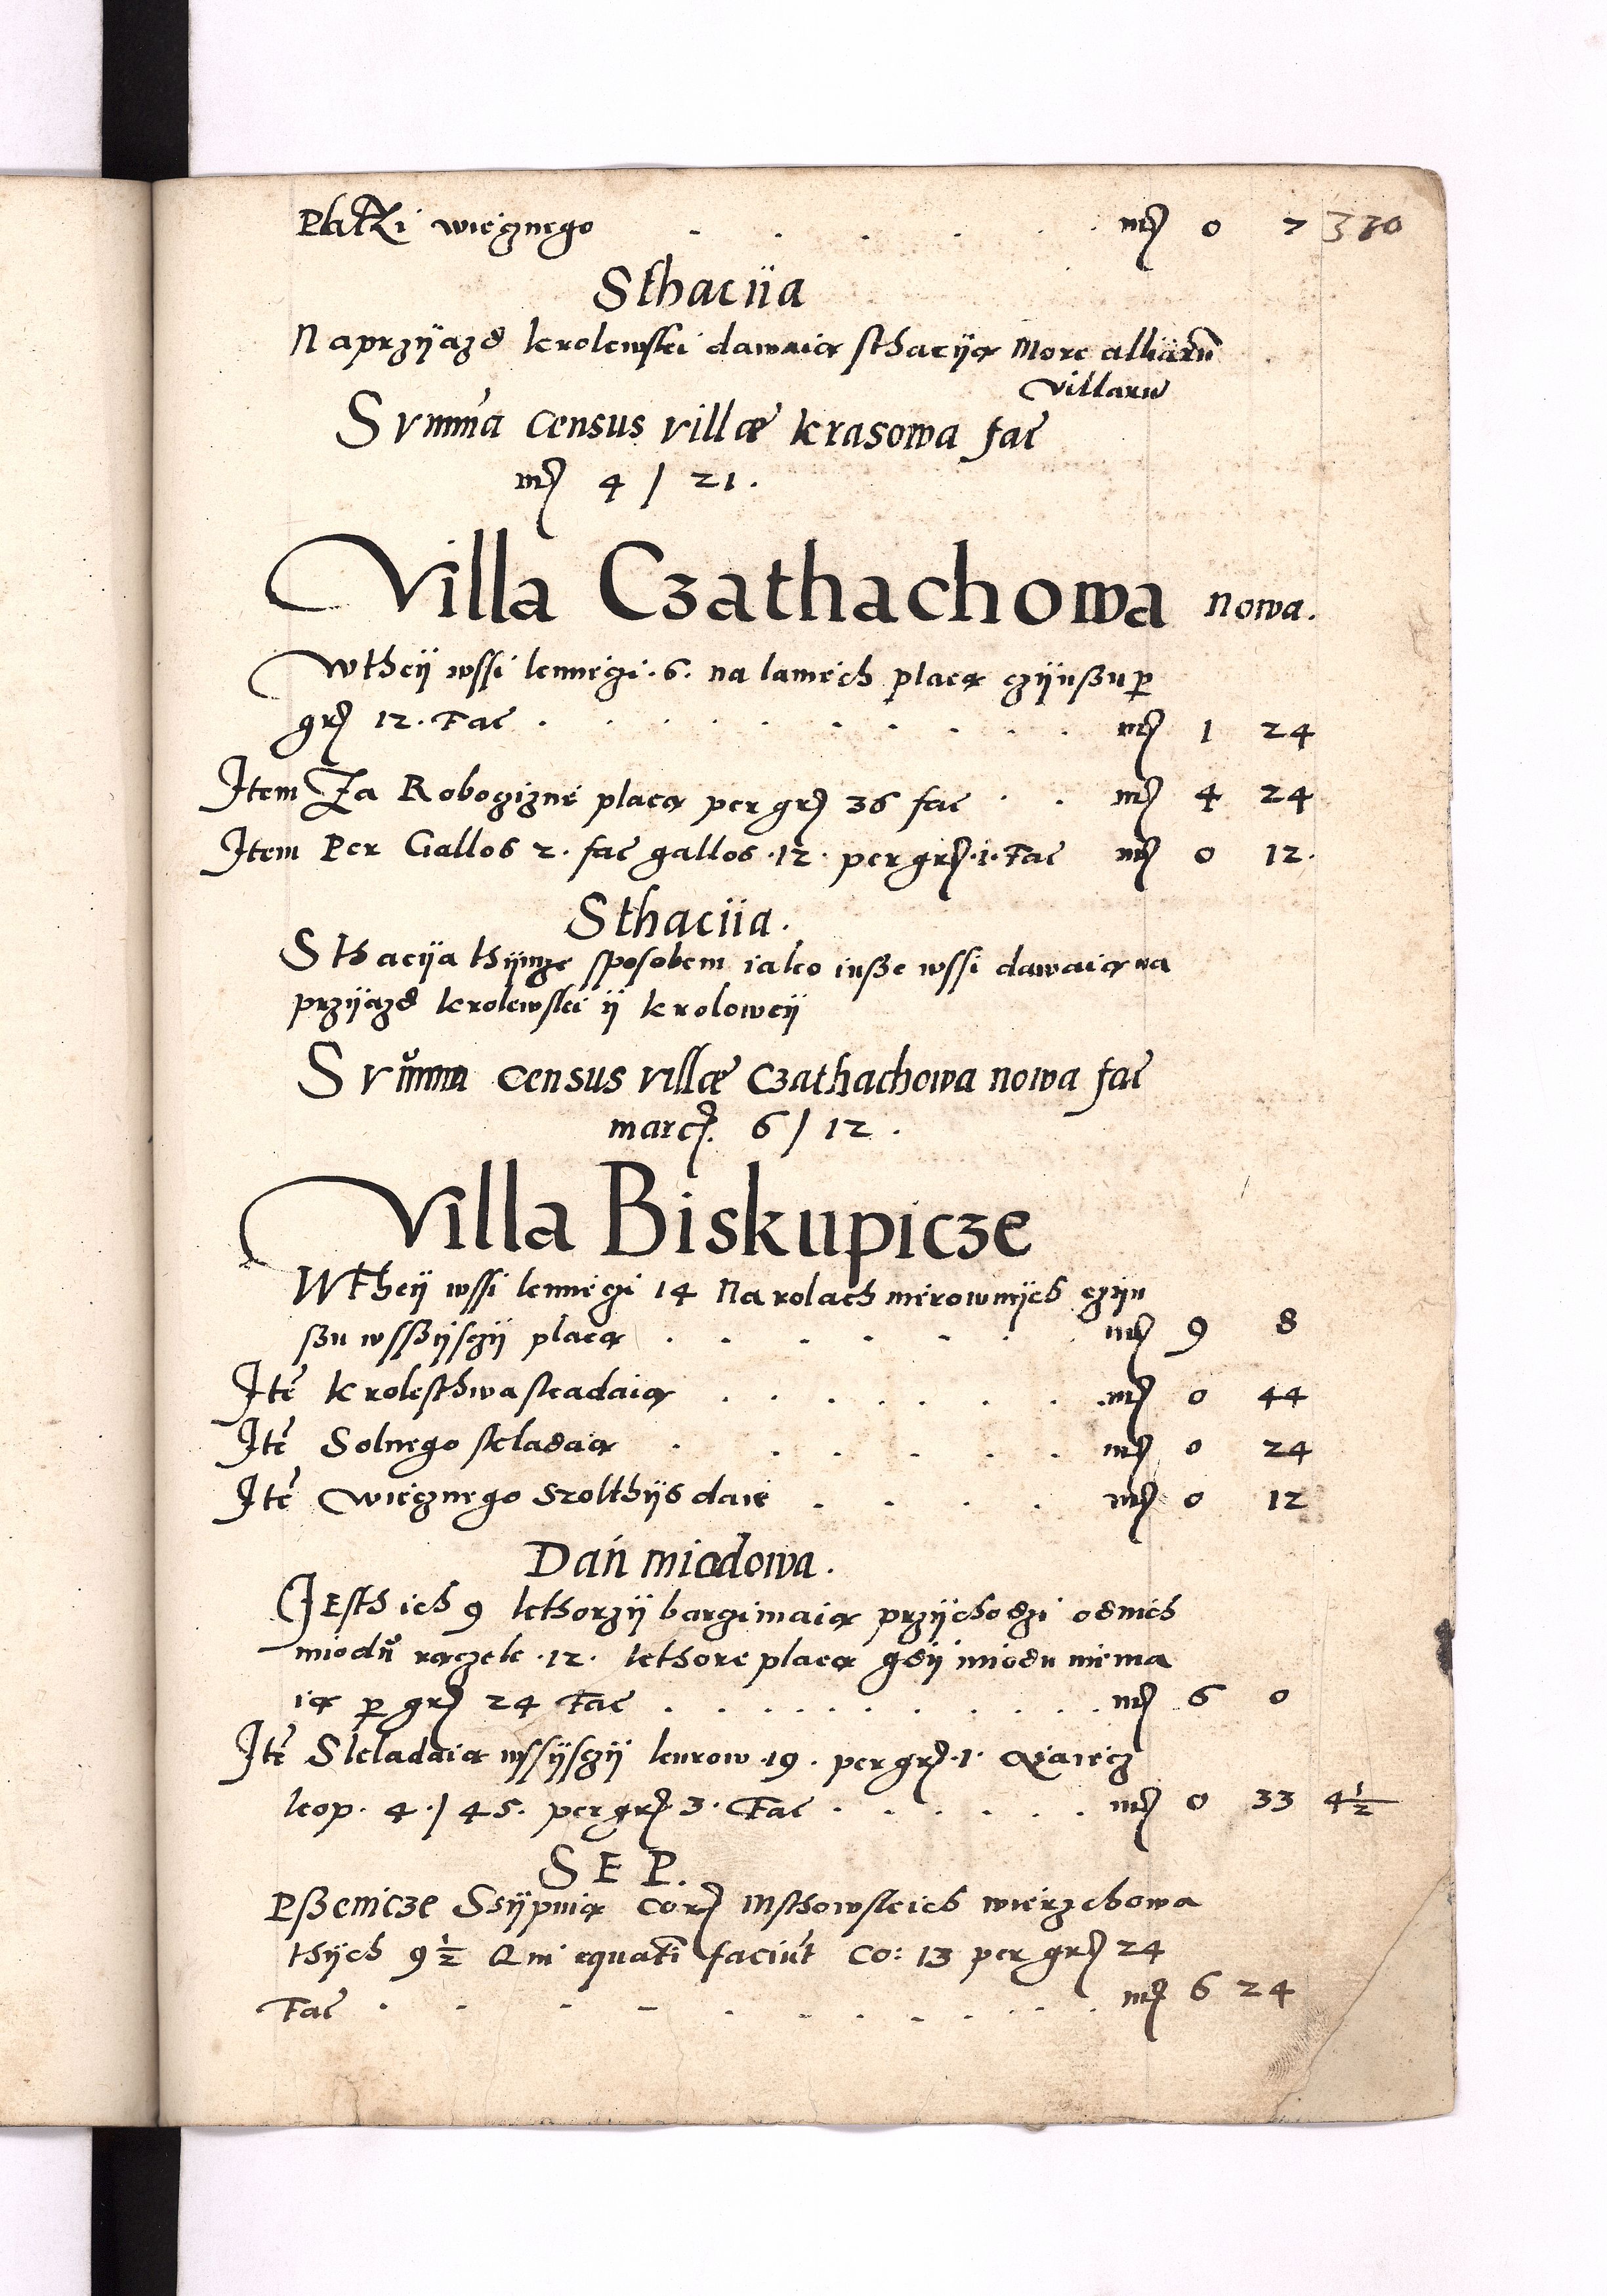 Platki wiecznego . . . . . . mrc 0 7 330
Sthaciia
Na przÿazd krolewski dawaią sthacÿą More alliarũ
villarũ
Svmma census villæ krasowa fac̃
mrc 4 / 21.
Villa Czathachowa nowa.
W theÿ wssi kmieczi .6. na laniech placzą czÿnßu p
grs 12. Fac̃ . . . . . . . . . mrc 1 24
Item Za Roboczizne placzą per grs 36 fac̃ . . mrc 4 24
Item Per Gallos 2. fac̃ gallos .12. per grs .1. Fac̃ mrc 0 12.
Sthaciia.
Sthacÿa thÿmze sposobem iako insze wssi dawaią na
przÿazd krolewski ÿ kroloweÿ
Svmma census villæ Czathachowa nowa fac̃
marc. 6 / 12.
Villa Biskupicze
W theÿ wssi kmieczi 14 Na rolach nierownÿch czÿn
ßu wssßÿsczÿ placzą . . . . . . . mrc 9 8
Itẽ krolesthwa skadaią . . . . . . . mrc 0 44
Itẽ Solnego składaią . . . . . . mrc 0 24
Itẽ Wiecznego Szolthÿs daie . . . . mrc 0 12
Dań miodowa.
Iesth ich 9 kthorzÿ barczi maią przÿchodzi od nich
miodů rączek .12. kthore placzą gdÿ miodu nie ma
ią p grs 24 Fac̃ . . . . . . . . . . mrc 6 0
Itẽ Skladaią wssÿsczÿ kurow .19. per grs .1. Jaiecz
kop. 4./45. per grs .3. Fac̃ . . . . . . mrc 0 33 4½
SEP.
Pßenicze Ssÿpuią Cor Msthowskich wierzchowa
thÿch 9½ Qui equati faciũt Co: 13 per grs 24
Fac̃ . . . . . . . . . . mrc 6 24